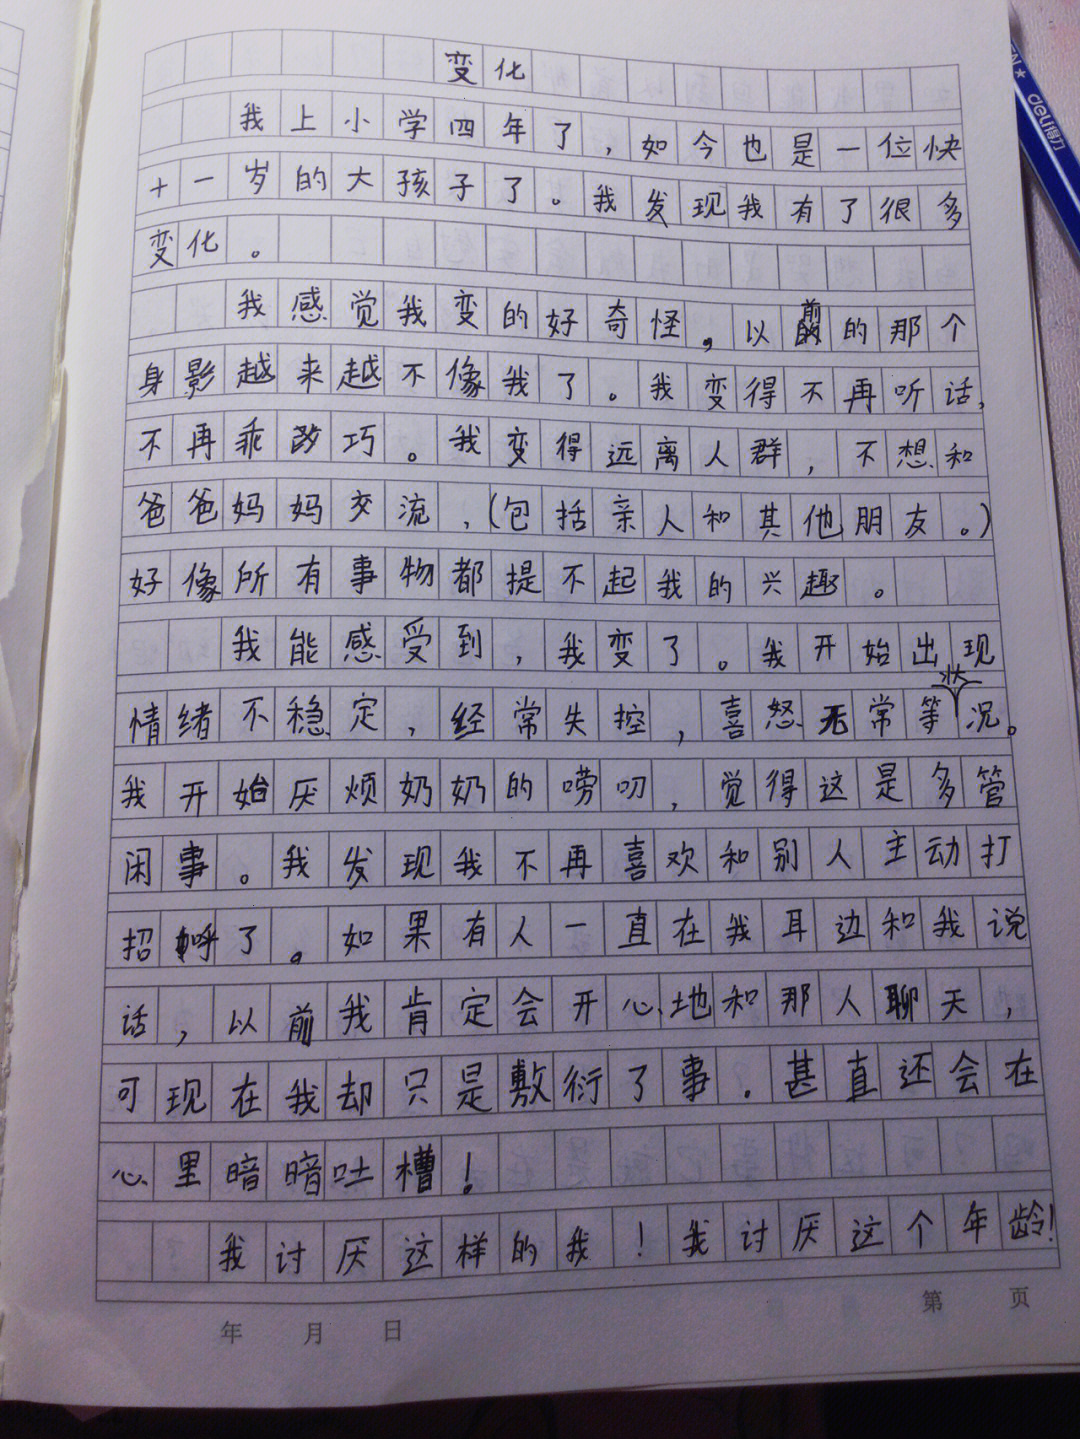 变化
我上小学四年了，如今也是一位快
十一岁的大孩子了。我发现我有了很多
变化。
我感觉我变的好奇怪。以前的那个
身影越来越不像我了。我变得不再听话，
不再乖巧。我变得远离人群，不想和
爸爸妈妈交流，(包括亲人和其他朋友。)
好像所有事物都提不起我的兴趣。
我能感受到，我变了。我开始出现
情绪不稳定，经常失控，喜怒无常等状况。
我开始厌烦奶奶的唠叨，觉得这是多管
闲事。我发现我不再喜欢和别人主动打
招呼了。如果有人一直在我耳边和我说
话，以前我肯定会开心地和那人聊天，
可现在我却只是敷衍了事．甚直还会在
心里暗暗吐槽！
我讨厌这样的我！我讨厌这个年龄！
年 月 日
第 页
deli得力